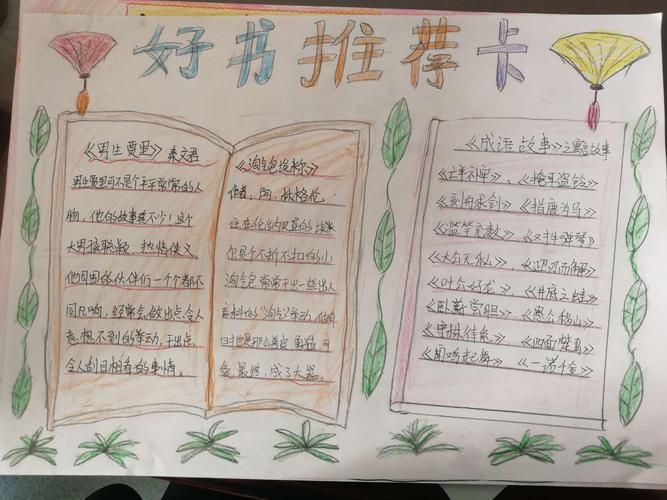 好书推荐卡
《男生贾里》 秦文君
男生贾里可不是个平平常常的人
物，他的故事真不少！这个
大男孩聪颖、热情侠义，
他周围的伙伴们一个个都不
同凡响，经常会做出点令人
意想不到的举动，干出点
令人刮目相看的事情。
《淘气包埃米尔》
作者：阿、林格伦
住在伦纳贝亚的埃米
尔是个不折不扣的小
淘气包常常干出一些出人
意料的"淘气"举动，但他
同时也是那么善良
最终，成了大器。
《成语故事》之寓言故事
《亡羊补牢》、《掩耳盗铃》
《刻舟求剑》、《指鹿为马》
《滥竽充数》、《对牛弹琴》
《大公无私》、《迎刃而解》
《叶公好龙》、《井底之蛙》
《卧薪尝胆》、《愚公移山》
《守株待兔》、《四面楚歌》
《闻鸡起舞》、《一诺千金》